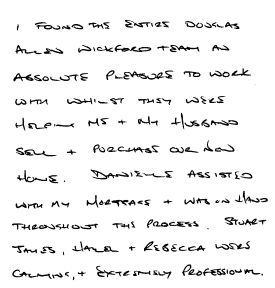 I FOUND THE ENTIRE DOUGLAS
ALLEN WICKFORD TEAM AN
ABSOLUTE PLEASURE TO WORK
WITH WHILST THEY WERE
HELPING ME + MY HUSBAND
SELL + PURCHASE OUR NEW
HOME. DANIELLE ASSISTED
WITH MY MORTGAGE + WAS ON HAND
THROUGHOUT THE PROCESS. STUART
JAMES, HAZEL + REBECCA WERE
CALMING, + EXTREMELY PROFESSIONAL.